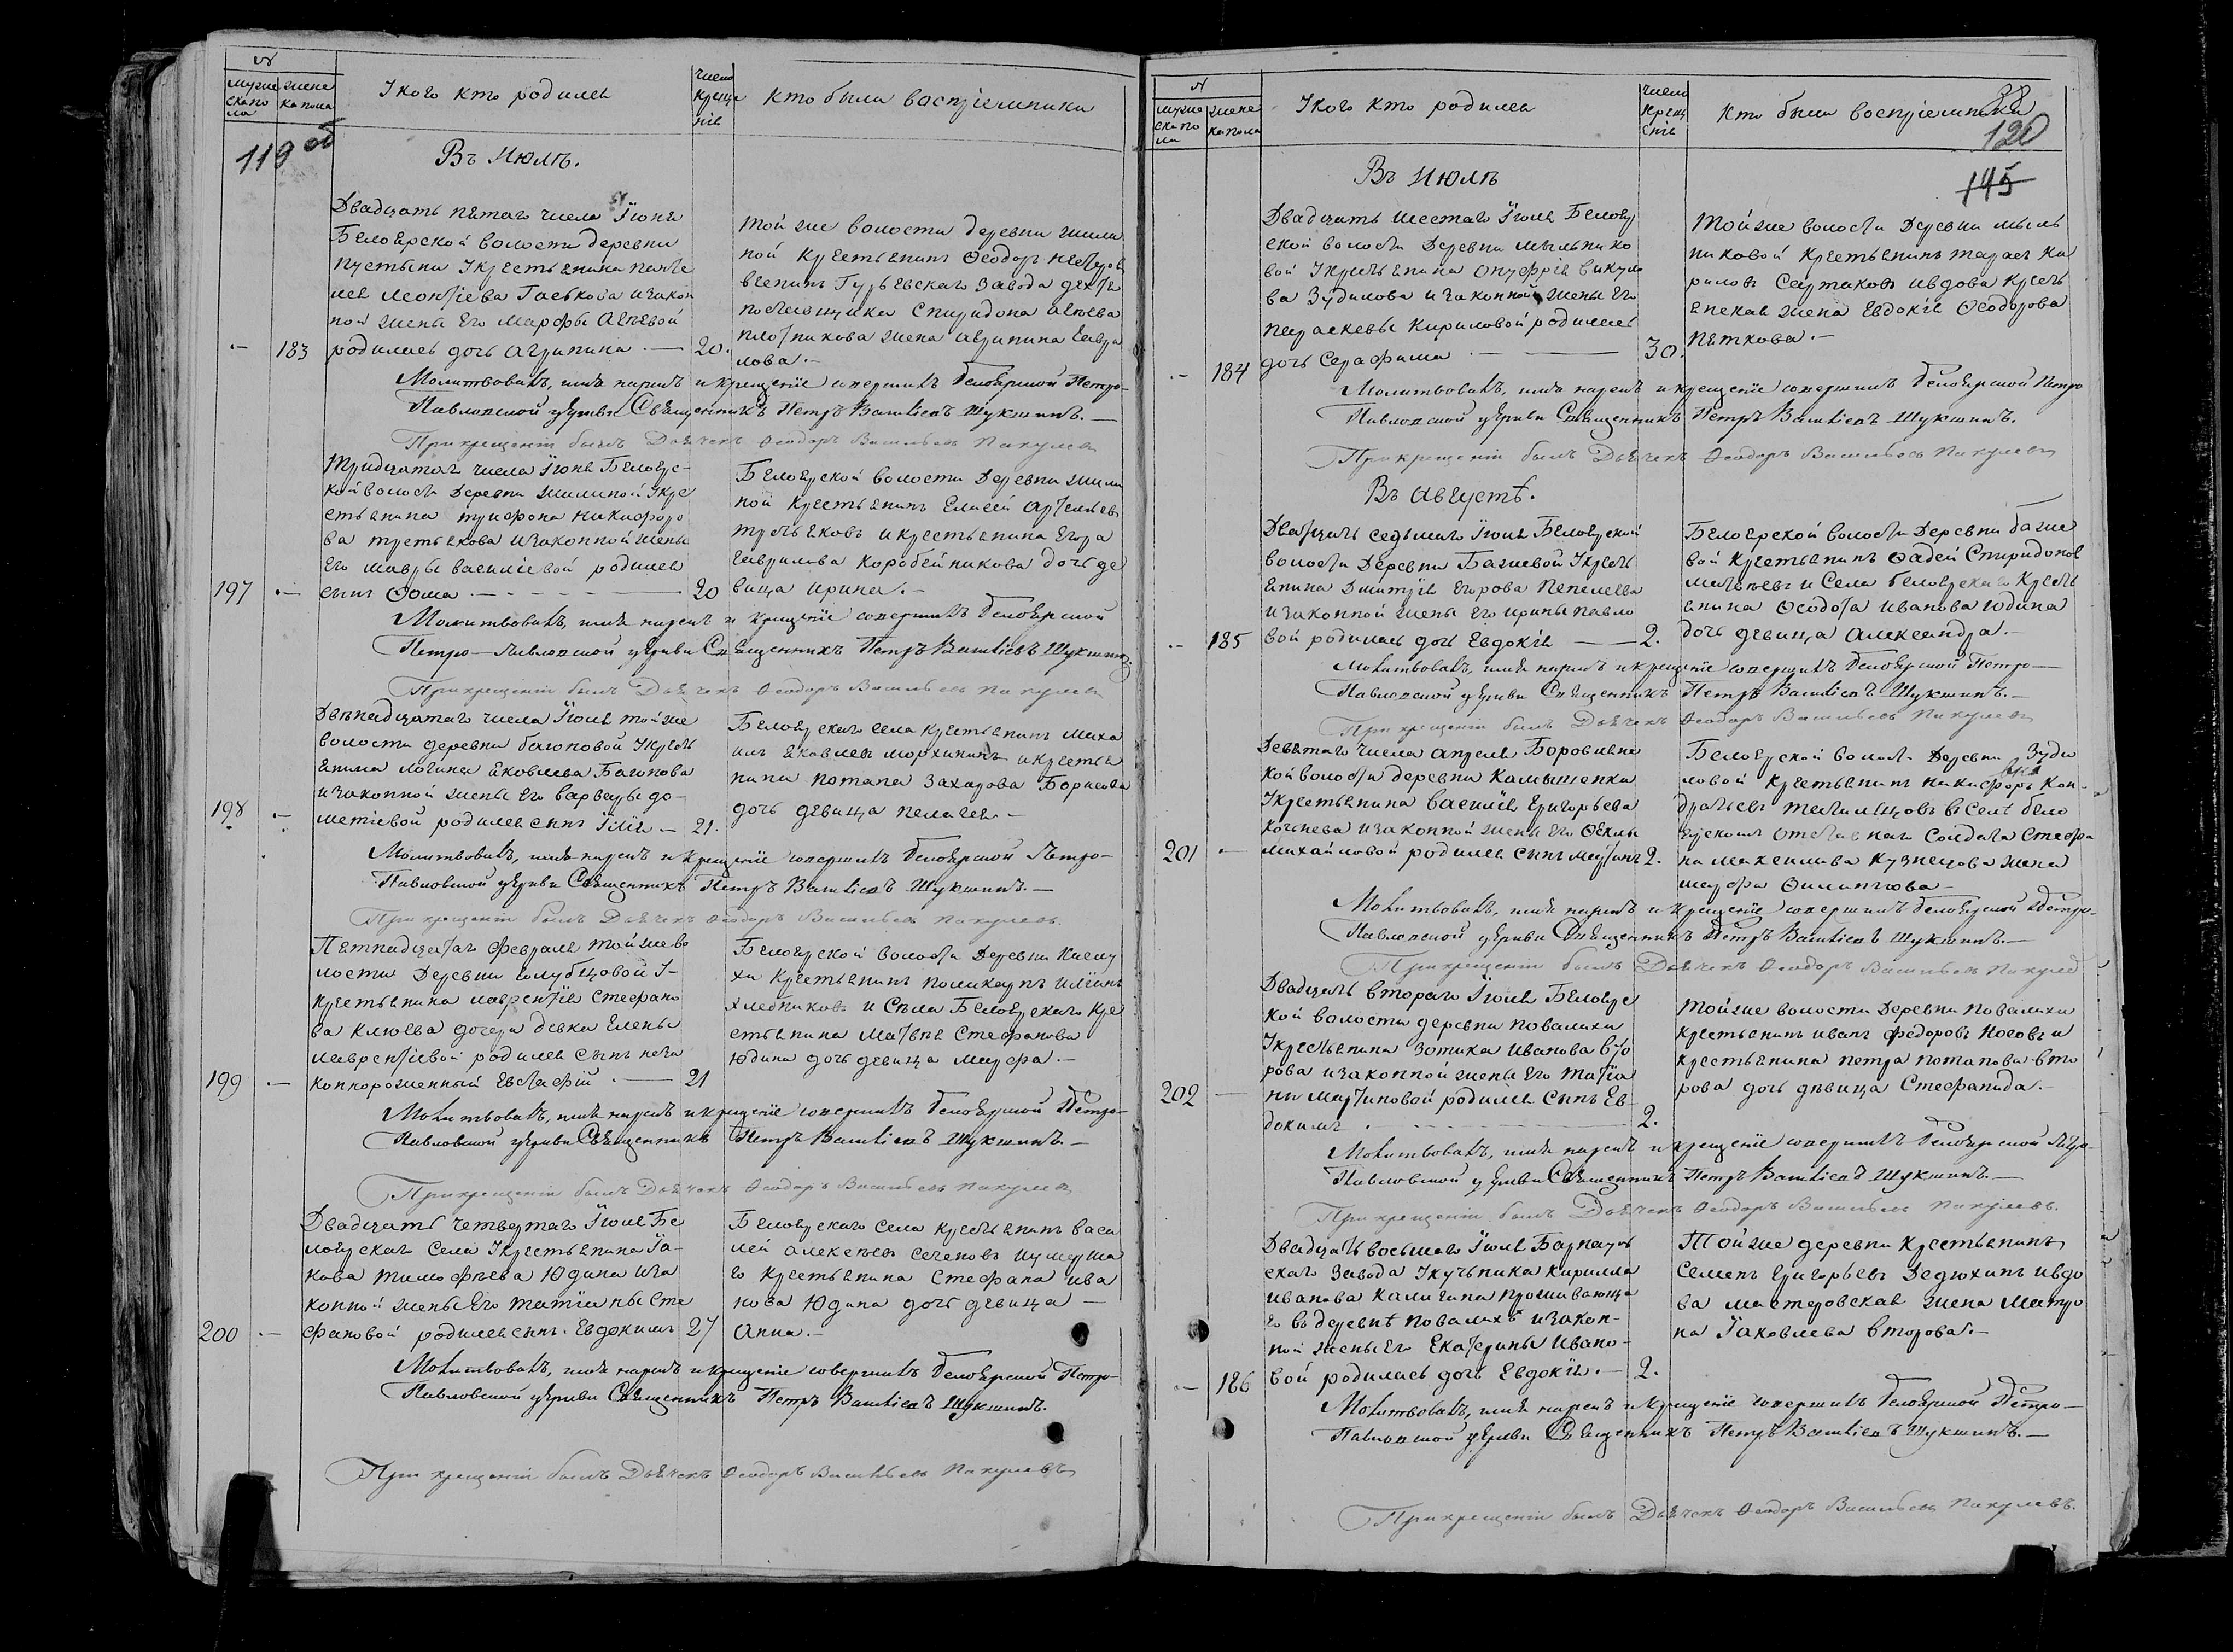 №
муже
ска по
ла
жене
ка пола
У кого кто родился
число
креще
нія
Кто были воспріемники
119 об
Въ Июлѣ.
Двадцать пятаго числа Іюня
Белоярской волости деревни
пустыни у крестьянина
Леонтіева и закон
ной жены его Марфы
183 родилась дочь Агрипина — 20.
той же волости деревни жили
ной крестьянинъ Ѳеодоръ
Гурьевскаго завода
Спиридона
жена Агрипина Гаври
лова. —
Молитвовалъ, имя нарекъ и крещеніе совершилъ Белоярской Петро-
Павловской церкви Священникъ Петръ Васильевъ Шукшинъ. —
При крещеніи былъ Дьячекъ Ѳеодоръ Васильевъ Пакулевъ
Тридцатаго числа Іюня Белояр-
кой волости деревни жилиной у кре
стьянина Трифона Никифоро
ва Третьякова и законной жены
его Мавры Василіевой родился
197 сынъ Ѳома — 20
Белоярской волости деревни жили
ной крестьянинъ Елисей Артемьевъ
Третьяковъ и крестьянина Егора
Гаврилова Коробейникова дочь де
вица Ирина. —
Молитвовалъ, имя нарекъ и крещеніе совершилъ Белоярской
Петро-Павловской церкви Священникъ Петръ Васильевъ Шукшинъ.
При крещеніи былъ Дьячекъ Ѳеодоръ Васильевъ Пакулевъ
Двѣнадцатаго числа Іюля той же
волости деревни у кресть
янина Логина Яковлева
и законной жены его Варвары До-
198 метіевой родился сынъ Илія — 21.
Белоярскаго села крестьянинъ Миха
илъ Яковлевъ и крестья
нина Потапа Захарова Борисова
дочь девица Пелагея. —
Молитвовалъ, имя нарекъ и крещеніе совершилъ Белоярской Петро-
Павловской церкви Священникъ Петръ Васильевъ Шукшинъ. —
При крещеніи былъ Дьячекъ Ѳеодоръ Васильевъ Пакулевъ.
Пятнадцатаго Февраля той же во
лости деревни голубцовой у
крестьянина Лаврентія Стефано
ва Клюева дочери девки Елены
Лаврентіевой родился сынъ неза
199 коннорожденный Евстафій — 21
Белоярской волости деревни Кислу
хи крестьянинъ Поликарпъ Ильинъ
Хлебниковъ и села Белоярскаго кре
стьянина Матвѣя Стефанова
Юдина дочь девица Марфа. —
Молитвовалъ, имя нарекъ и крещеніе совершилъ Белоярской Петро-
Павловской церкви Священникъ Петръ Васильевъ Шукшинъ. —
При крещеніи былъ Дьячекъ Ѳеодоръ Васильевъ Пакулевъ
Двадцать четвертаго Іюля Бе
лоярскаго села у крестьянина Іа-
кова Тимофѣева Юдина и за
конной жены его Татіаны Сте
200 фановой родился сынъ Евдокимъ 27
Белоярскаго села крестьянинъ Васи
лей Алексѣевъ Сеченовъ и умерша
го крестьянина Стефана Ива
нова Юдина дочь девица —
Анна. —
Молитвовалъ, имя нарекъ и крещеніе совершилъ Белоярской Петро-
Павловской церкви Священникъ Петръ Васильевъ Шукшинъ.
При крещеніи былъ Дьячекъ Ѳеодоръ Васильевъ Пакулевъ
№
муже
ска по
ла
жене
ка пола
У кого кто родился
число
крещ
енія
Кто были воспріемники
120
145
Въ Июлѣ
Двадцать шестаго Іюля Белояр
ской волости деревни мыльнико
вой у крестьянина Онуфрія Викуло
ва Зудилова и законной жены его
Параскевы Кириловой родилась
184 дочь Серафима — 30.
Той же волости деревни мыль
никовой крестьянинъ Тарасъ Ки
риловъ Сартаковъ и вдова кресть
янская жена Евдокія Ѳеодорова
Пяткова. —
Молитвовалъ, имя нарекъ и крещеніе совершилъ Белоярской Петро
Павловской церкви Священникъ Петръ Васильевъ Шукшинъ.
При крещеніи былъ Дьячекъ Ѳеодоръ Васильевъ Пакулевъ
Въ Августѣ.
Двадцать седьмаго Іюля Белоярской
волости деревни Бажевой у кресть
янина Дмитрія Егорова Пепелева
и законной жены его Ирины Павло
185 вой родилась дочь Евдокія — 2.
Белоярской волости деревни баже
вой крестьянинъ Фадей Спиридонов
и села белоярскаго кресть
янина Ѳеодота Иванова Юдина
дочь девица Александра. —
Молитвовалъ, имя нарекъ и крещеніе совершилъ Белоярской Петро-
Павловской церкви Священникъ Петръ Васильевъ Шукшинъ. —
При крещеніи былъ Дьячекъ Ѳеодоръ Васильевъ Пакулевъ
Девятаго числа Апреля Боровлянс
кой волости деревни Камышенки
у крестьянина Василія Григорьева
и законной жены его Ѳеклы
201 Михайловой родился сынъ Мартинъ 2.
Белоярской волости деревни Зуди
ловой крестьянинъ Никифоръ Кон-
дратьевъ в селѣ бело
ярскомъ отставнаго солдата Стефа
на Максимова Кузнецова жена
Марфа Филиппова —
Молитвовалъ, имя нарекъ и крещеніе совершилъ Белоярской Петро-
Павловской церкви Священникъ Петръ Васильевъ Шукшинъ. —
При крещеніи былъ Дьячекъ Ѳеодоръ Васильевъ Пакулев
Двадцать втораго Іюля Белоярс
кой волости деревни Повалихи
у крестьянина Зотика Иванова Вто
рова и законной жены его Татіа
202 ны Мартиновой родился сынъ Ев-
докимъ — 2.
Той же волости деревни Повалихи
крестьянинъ Иванъ Федоровъ Носовъ и
крестьянина Петра Потапова Вто
рова дочь девица Стефанида. —
Молитвовалъ, имя нарекъ и крещеніе совершилъ Белоярской Петро-
Павловской церкви Священникъ Петръ Васильевъ Шукшинъ. —
При крещеніи былъ Дьячекъ Ѳеодоръ Васильевъ Пакулевъ.
Двадцать восьмаго Іюля Барнауль
скаго завода у Кирилла
Иванова Калигина проживающа
го въ деревнѣ Повалихѣ и закон-
ной жены его Екатерины Ивано-
186 вой родилась дочь Евдокія. — 2.
Той же деревни крестьянинъ
Семенъ Григорьевъ Дедюхинъ и вдо
ва мастеровская жена Матро
на Іаковлева Второва. —
Молитвовалъ, имя нарекъ и крещеніе совершилъ Белоярской Петро-
Павловской церкви Священникъ Петръ Васильевъ Шукшинъ. —
При крещеніи былъ Дьячекъ Ѳеодоръ Васильевъ Пакулевъ.